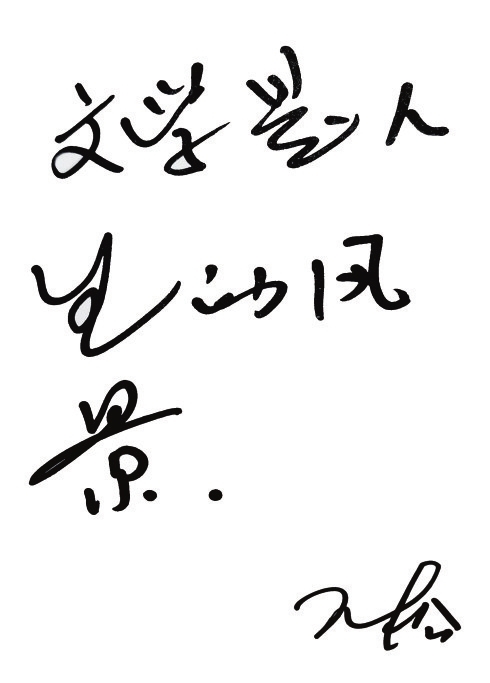 文学是人
生的风
景.